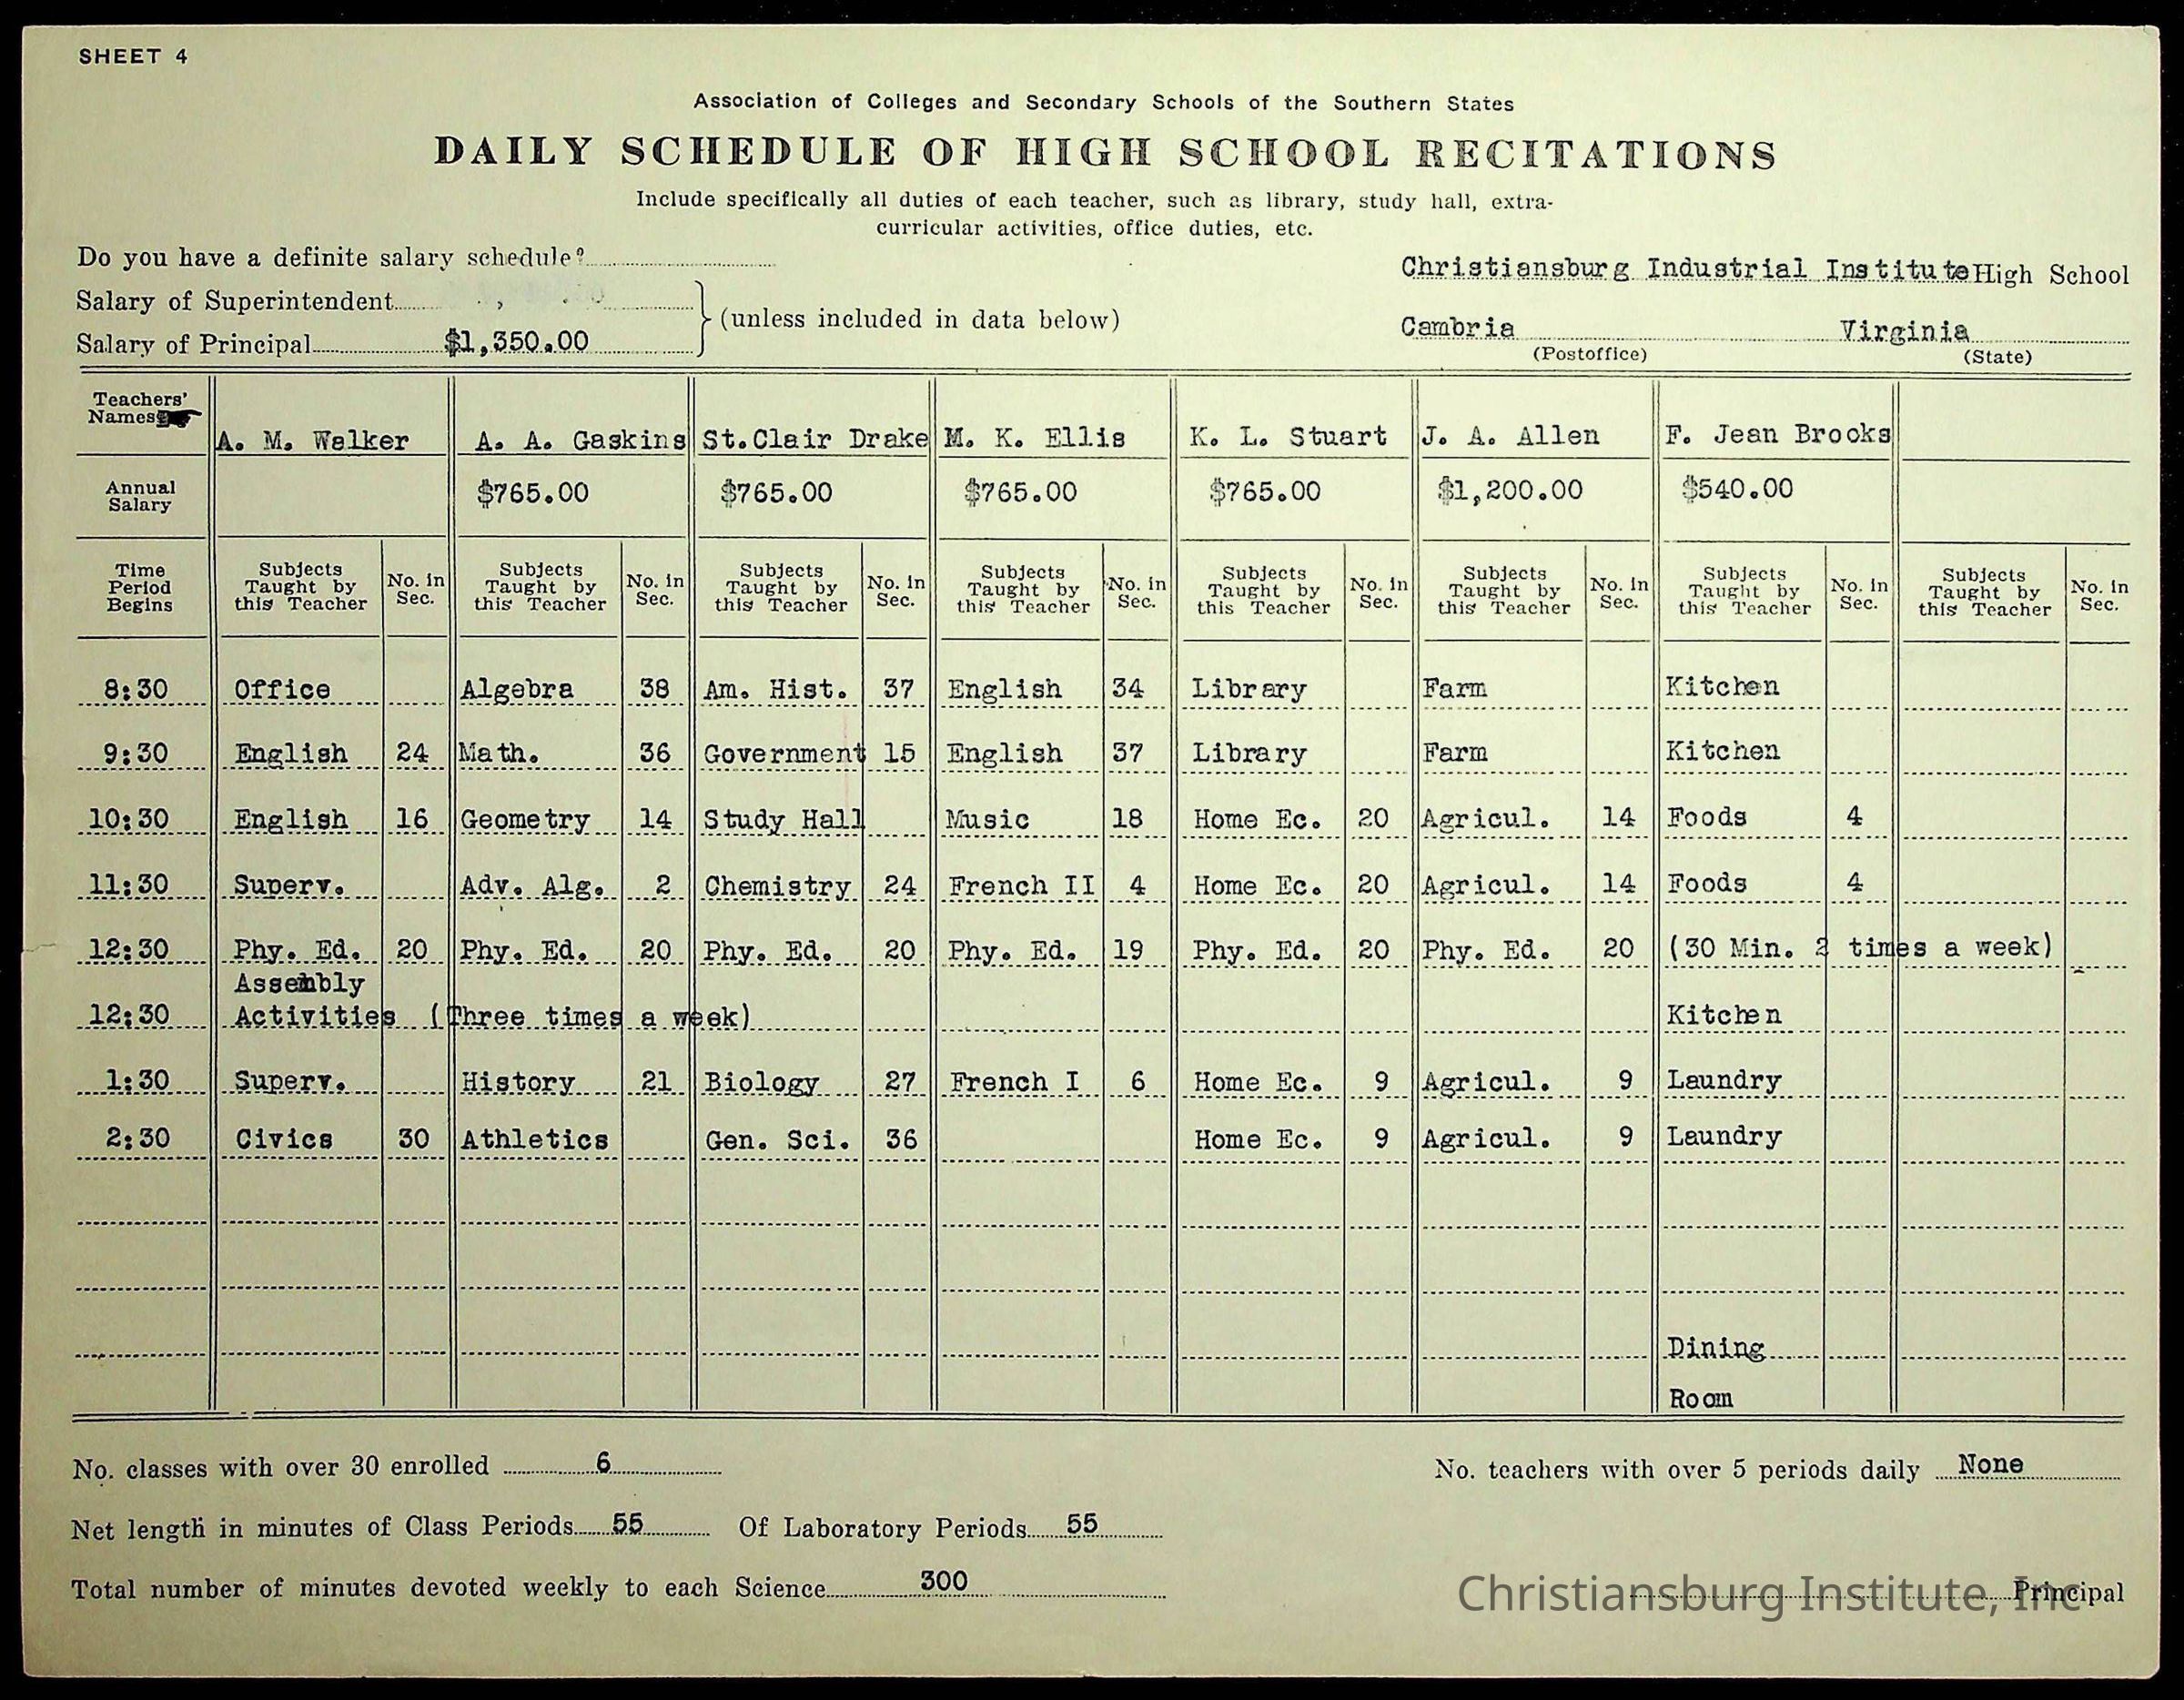 SHEET 4
Association of Colleges and Secondary Schools of the Southern States
DAILY SCHEDULE OF HIGH SCHOOL RECITATIONS
Include specifically all duties of each teacher, such as library, study hall, extra-
curricular activities, office duties, etc.
Do you have a definite salary schedule?
Christiansburg Industrial Institute High School
Salary of Superintendent
(unless included in data below)
Salary of Principal $1,350.00
Cambria Virginia
(Postoffice) (State)
Teachers' Names A. M. Walker A. A. Gaskins St.Clair Drake M. K. Ellis K. L. Stuart J. A. Allen F. Jean Brooks
Annual Salary $765.00 $765.00 $765.00 $765.00 $1,200.00 $540.00
Time Period Begins Subjects Taught by this Teacher No. in Sec. Subjects Taught by this Teacher No. in Sec. Subjects Taught by this Teacher No. in Sec. Subjects Taught by this Teacher No. in Sec. Subjects Taught by this Teacher No. in Sec. Subjects Taught by this Teacher No. in Sec. Subjects Taught by this Teacher No. in Sec. Subjects Taught by this Teacher No. in Sec.
8:30 Office Algebra 38 Am. Hist. 37 English 34 Library Farm Kitchen
9:30 English 24 Math. 36 Government 15 English 37 Library Farm Kitchen
10:30 English 16 Geometry 14 Study Hall Music 18 Home Ec. 20 Agricul. 14 Foods 4
11:30 Superv. Adv. Alg. 2 Chemistry 24 French II 4 Home Ec. 20 Agricul. 14 Foods 4
12:30 Phy. Ed. 20 Phy. Ed. 20 Phy. Ed. 20 Phy. Ed. 19 Phy. Ed. 20 Phy. Ed. 20 (30 Min. 2 times a week)
Assembly
12:30 Activities (Three times a week) Kitchen
1:30 Superv. History 21 Biology 27 French I 6 Home Ec. 9 Agricul. 9 Laundry
2:30 Civics 30 Athletics Gen. Sci. 36 Home Ec. 9 Agricul. 9 Laundry
Dining
Room
No. classes with over 30 enrolled 6
No. teachers with over 5 periods daily None
Net length in minutes of Class Periods 55 Of Laboratory Periods 55
Total number of minutes devoted weekly to each Science 300
Principal
Christiansburg Institute, Inc